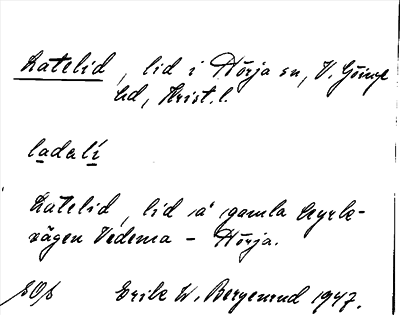 Latelid, lid i Nörja sn, V. Göinge
hd, Krist. l.
ladalí
Latelid, lid å gamla kyrk-
vägen Vedema - Nörja.
SOf Erik W. Bergenrud 1947.